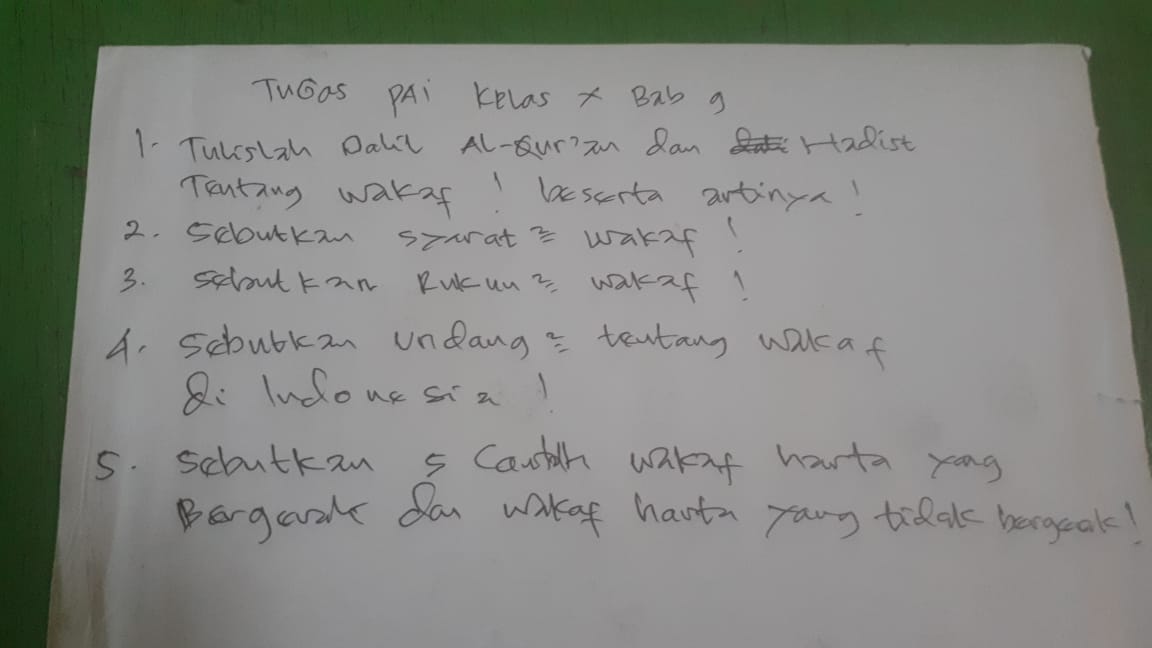 Tugas PAI Kelas X Bab 9
1. Tulislah Dalil Al-Qur'an dan Hadist
Tentang wakaf ! beserta artinya !
2. Sebutkan syarat² wakaf !
3. Sebutkan Rukun² wakaf !
4. Sebutkan undang² tentang wakaf
di Indonesia !
5. Sebutkan 5 Contoh wakaf harta yang
Bergerak dan wakaf harta yang tidak bergerak!